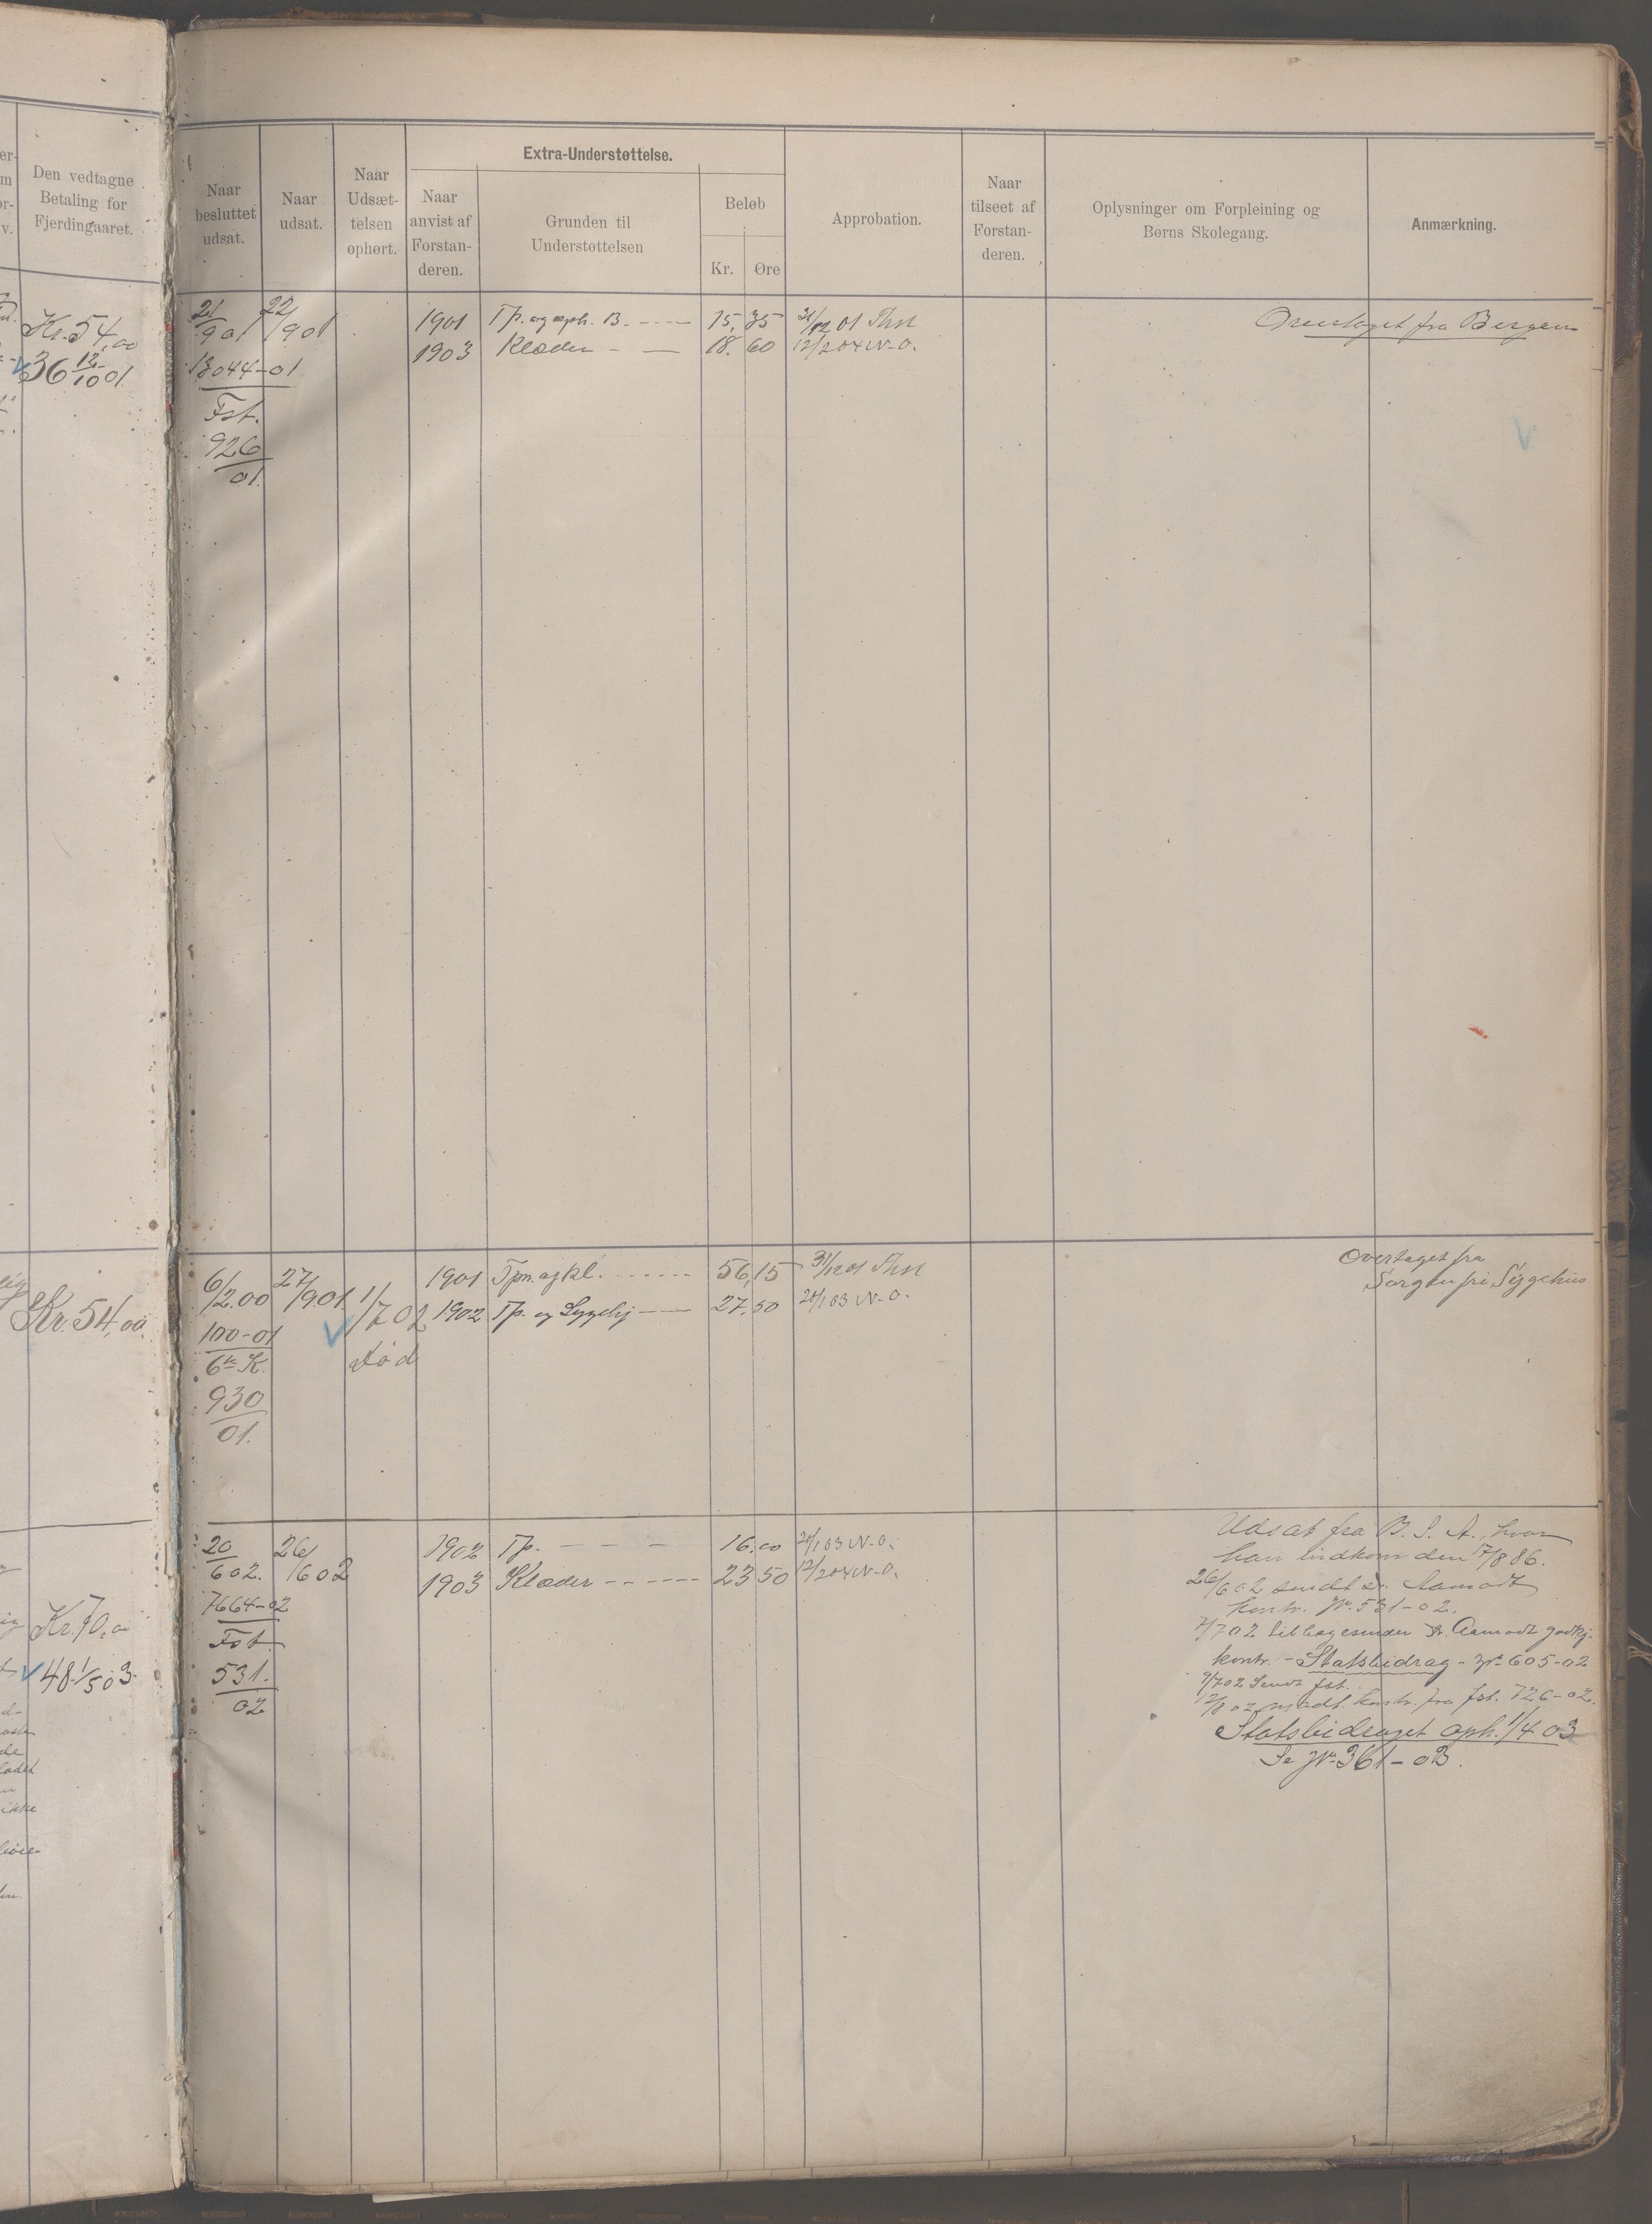 Den vedtagne
Betaling for
Fjerdingaaret.
Naar
besluttet
udsat.
Naar
udsat.
Naar
Udsæt-
telsen
ophørt.
Extra-Understøttelse.
Naar
anvist af
Forstan-
deren.
Grunden til
Understøttelsen
Beløb
Kr. Øre
Approbation.
Naar
tilseet af
Forstan-
deren.
Oplysninger om Forpleining og
Børns Skolegang.
Anmærkning.
Kr. 54,00
36 12/10 01.
21/9 01 22/9 01
13044-01
Fst.
926
01.
1901 Tp. og oph. B. 15,35 31/12 01
1903 Klæder 18.60 12/2 04 N-O.
Overtaget fra Bergen
Kr. 54,00
6/2.00 27/901 1/702
100-01
6te K.
930
01.
død
1901 Tpn. og kl. 56,15 31/12 01
1902 Tp. og Sygehj 27,50 20/1 03 N-O.
Overtaget fra
Sorgenfri Sygehus
Kr. 70,00
48 1/5 03
20/602. 26/602
7664-02
Fst
531.
02
1902 Tp. 16.00 20/1 03 N-O.
1903 Klæder 23 50 12/2 04 N-O.
Udsat fra B. S. A., hvor
han indkom den 17/8 86.
26/6 02 sendt Dr. Aamodt
kontr. Jr. 531-02.
7/7 02 Dr. Aamodt godkj.
kontr. - Statsbidrag - Jr. 605-02
9/7 02 Sendt fst.
12/8 02 modt. kontr. fra fst. 726-02.
Statsbidraget oph. 1/4 03
Se Jr. 361-03.